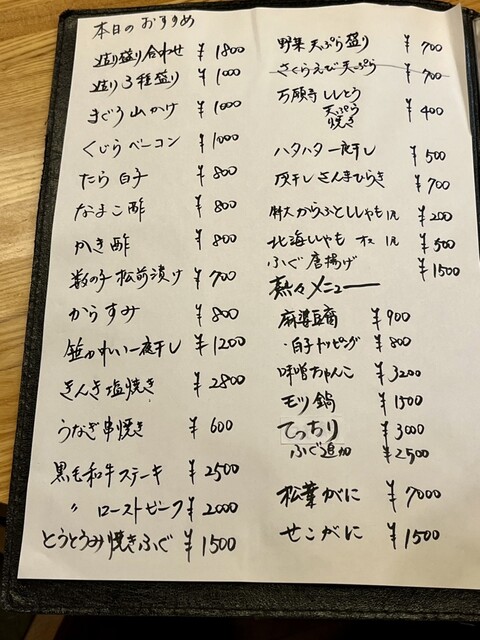 本日のおすすめ
造り盛り合わせ ¥1800
造り3種盛り ¥1000
まぐろ山かけ ¥1000
くじらベーコン ¥1000
たら白子 ¥800
なまこ酢 ¥800
かき酢 ¥800
数の子松前漬け ¥700
からすみ ¥800
笹かれい一夜干し ¥1200
きんき塩焼き ¥2800
うなぎ串焼き ¥600
黒毛和牛ステーキ ¥2500
〃 ローストビーフ ¥2000
とうとうみ焼きふぐ ¥1500
野菜天ぷら盛り ¥700
さくらえび天ぷら ¥700
万願寺ししとう
天ぷら ¥400
焼き
ハタハタ一夜干し ¥500
灰干しさんまひらき ¥700
特大からふとししゃも1尾 ¥200
北海ししゃも オス 1尾 ¥500
ふぐ唐揚げ ¥1500
熱々メニュー
麻婆豆腐 ¥900
・白子トッピング ¥800
味噌ちゃんこ ¥3200
モツ鍋 ¥1500
てっちり ¥3000
ふぐ追加 ¥2500
松葉がに ¥7000
せこがに ¥1500